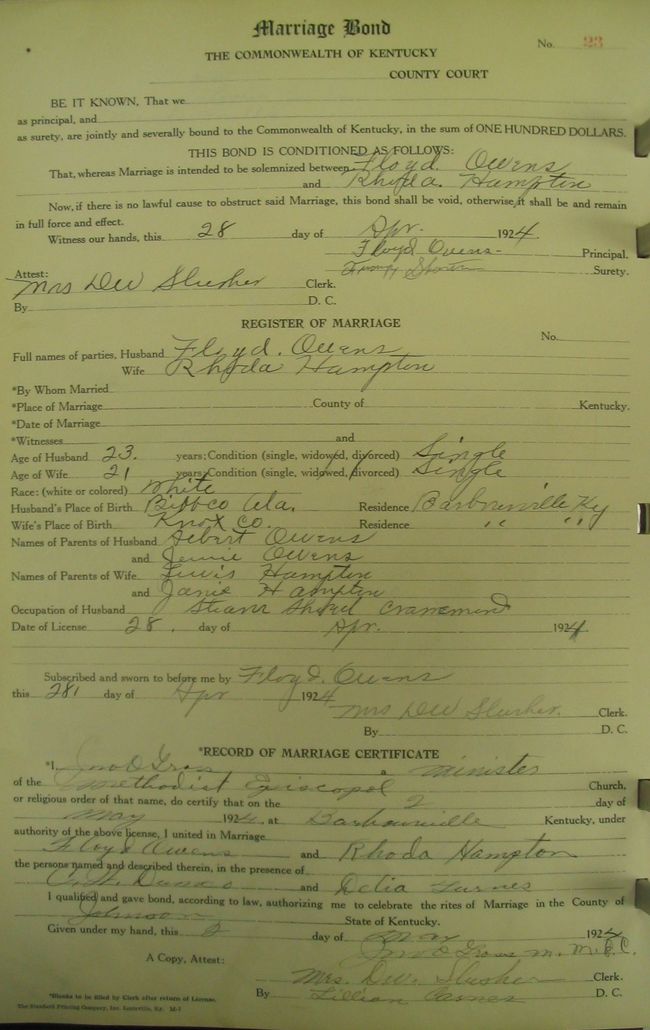 Marriage Bond
No. 23
THE COMMONWEALTH OF KENTUCKY
COUNTY COURT
BE IT KNOWN, That we
as principal, and
as surety, are jointly and severally bound to the Commonwealth of Kentucky, in the sum of ONE HUNDRED DOLLARS.
THIS BOND IS CONDITIONED AS FOLLOWS:
That, whereas Marriage is intended to be solemnized between Floyd. Owens
and Rhoda. Hampton
Now, if there is no lawful cause to obstruct said Marriage, this bond shall be void, otherwise, it shall be and remain
in full force and effect.
Witness our hands, this 28 day of Apr. 1924.
Floyd Owens Principal.
Surety.
Attest:
Mrs DW Slusher Clerk.
By D. C.
REGISTER OF MARRIAGE
No.
Full names of parties, Husband Floyd. Owens
Wife Rhoda Hampton
*By Whom Married
*Place of Marriage County of Kentucky.
*Date of Marriage
*Witnesses and
Age of Husband 23. years; Condition (single, widowed, divorced) Single
Age of Wife 21 years; Condition (single, widowed, divorced) Single
Race: (white or colored) White
Husband's Place of Birth Bibb co Ala. Residence Barbourville Ky
Wife's Place of Birth Knox co. Residence " "
Names of Parents of Husband Owens
and Jennie Owens
Names of Parents of Wife Lewis Hampton
and Janie Hampton
Occupation of Husband Steam Shovel Craneman
Date of License 28. day of Apr. 1924.
Subscribed and sworn to before me by Floyd. Owens
this 28 day of Apr 1924
Mrs DW Slusher. Clerk.
By D. C.
*RECORD OF MARRIAGE CERTIFICATE
*I, Jno O Gross a minister
of the Methodist Episcopal Church,
or religious order of that name, do certify that on the 2 day of
May 1924. at Barbourville Kentucky, under
authority of the above license, I united in Marriage
Floyd Owens and Rhoda Hampton
the persons named and described therein, in the presence of
and Delia
I qualified and gave bond, according to law, authorizing me to celebrate the rites of Marriage in the County of
Johnson State of Kentucky.
Given under my hand, this 2 day of May 1924
Jno O Gross, M. M.E.C.
A Copy, Attest:
Mrs. DW. Slusher Clerk.
By Lillian D. C.
*Blanks to be filled by Clerk after return of License.
The Standard Printing Company, Inc. Louisville, Ky.